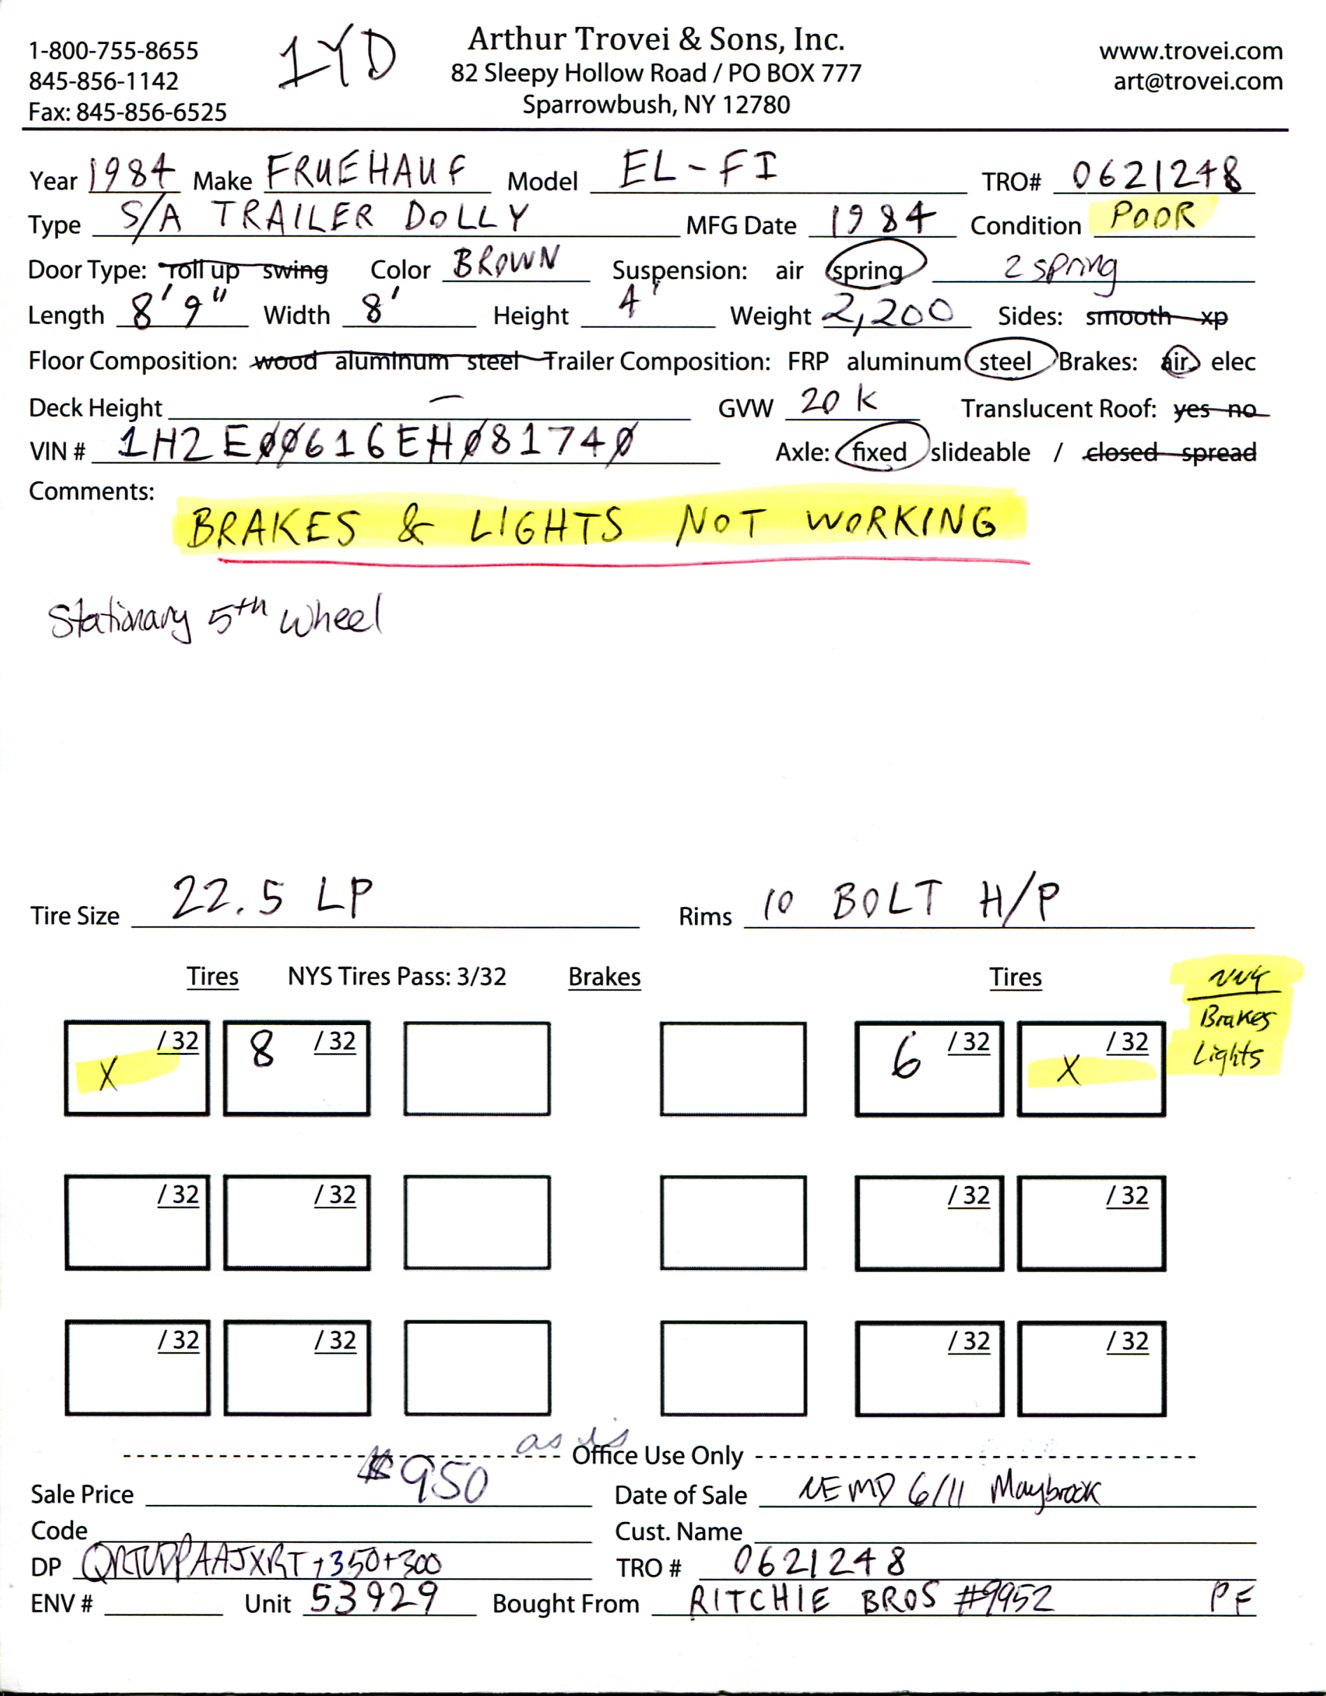 1-800-755-8655
845-856-1142
Fax: 845-856-6525
1YD
Arthur Trovei & Sons, Inc.
82 Sleepy Hollow Road / PO BOX 777
Sparrowbush, NY 12780
www.trovei.com
art@trovei.com
Year 1984 Make FRUEHAUF Model EL-FI TRO# 0621248
Type S/A TRAILER DOLLY MFG Date 1984 Condition POOR
Door Type: roll up swing Color BROWN Suspension: air spring 2 spring
Length 8'9" Width 8' Height 4' Weight 2,200 Sides: smooth xp
Floor Composition: wood aluminum steel Trailer Composition: FRP aluminum steel Brakes: air elec
Deck Height — GVW 20K Translucent Roof: yes no
VIN # 1H2E00616EH081740 Axle: fixed slideable / closed spread
Comments:
BRAKES & LIGHTS NOT WORKING
Stationary 5th wheel
Tire Size 22.5 LP Rims 10 BOLT H/P
Tires NYS Tires Pass: 3/32 Brakes Tires
NYS
Brakes
Lights
X /32 8 /32 6 /32 X /32
/32 /32 /32 /32
/32 /32 /32 /32
as is
Office Use Only
Sale Price $950 Date of Sale NEMD 6/11 Maybrook
Code Cust. Name
DP +350+300 TRO # 0621248
ENV # Unit 53929 Bought From RITCHIE BROS #9952 PF